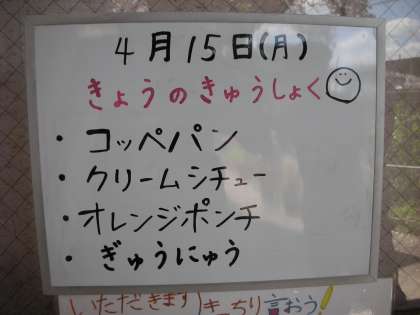 4月15日(月)
きょうのきゅうしょく
・コッペパン
・クリームシチュー
・オレンジポンチ
・ぎゅうにゅう
いただきます きっちり言おう!